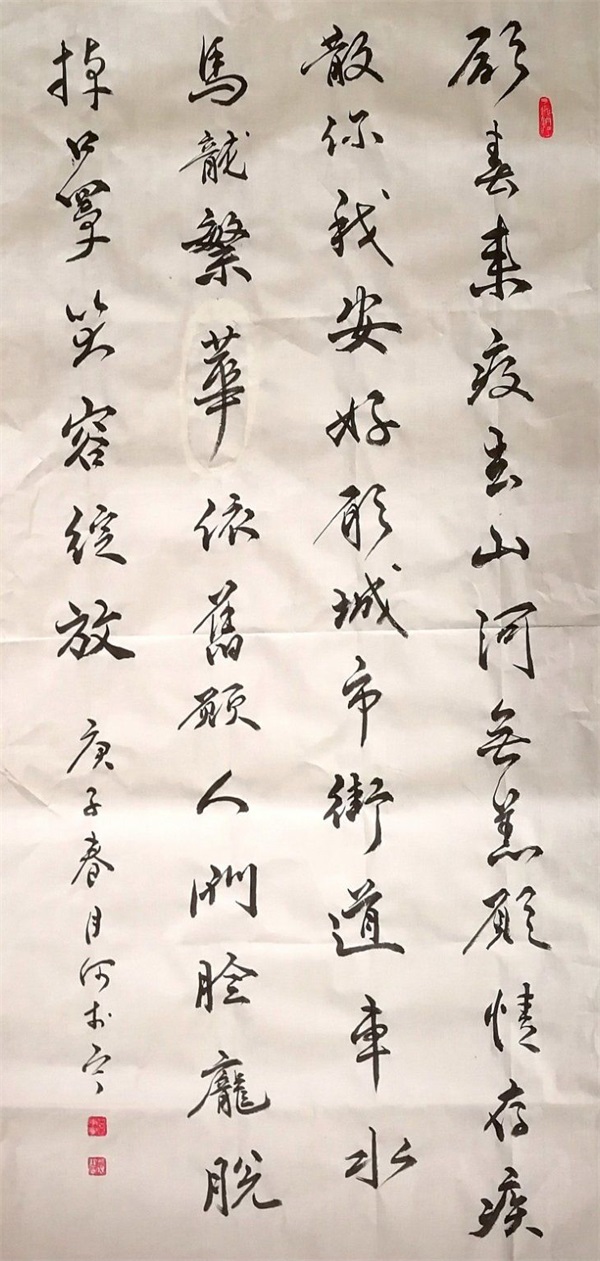 願春來疫去山河無恙願情存疾
散你我安好願城市街道車水
馬龍繁華依舊願人們臉龐脫
掉口罩笑容綻放
庚子春月